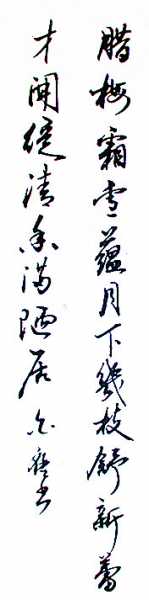 腊梅霜雪蕴月下几枝舒新蕾
才闻绽清香满陋居